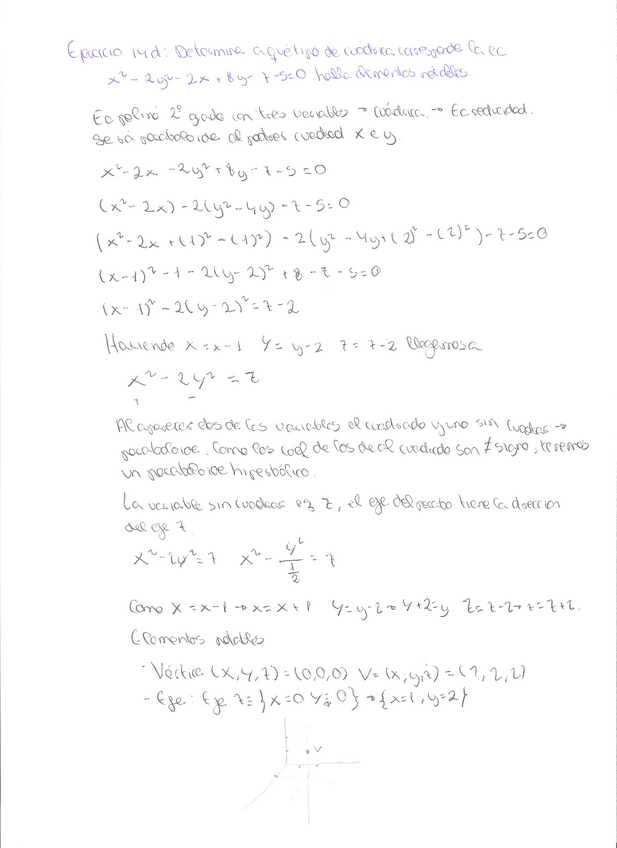 Ejercicio 14d: Determina a qué tipo de cuádrica corresponde la ec
x² - 2y² - 2x + 8y - z - 5 = 0 halla elementos notables.
Ec polinó 2º grado con tres variables → cuádrica. → Ec reducidad.
Será paraboloide al poseer cuadrad x e y.
x² - 2x - 2y² + 8y - z - 5 = 0
(x² - 2x) - 2(y² - 4y) - z - 5 = 0
(x² - 2x + (1)² - (1)²) - 2(y² - 4y + (2)² - (2)²) - z - 5 = 0
(x-1)² - 1 - 2(y-2)² + 8 - z - 5 = 0
(x-1)² - 2(y-2)² = z - 2
Haciendo X = x-1 Y = y-2 Z = z-2 llegamos a
X² - 2Y² = Z
Al aparecer dos de las variables al cuadrado y uno sin cuadrar →
paraboloide. Como los coef de los de al cuadrado son ≠ signo, tenemos
un paraboloide hiperbólico.
La variable sin cuadrar es z, el eje del parabo tiene la dirección
del eje z
X² - 2Y² = Z X² - Y²/(1/2) = Z
Como X = x-1 → x = X+1 Y = y-2 → Y+2 = y Z = z-2 → z = Z+2.
Elementos notables
- Vértice (X,Y,Z) = (0,0,0) V = (x,y,z) = (1,2,2)
- Eje: Eje Z ≡ {X=0 Y=0} → {x=1, y=2}
V